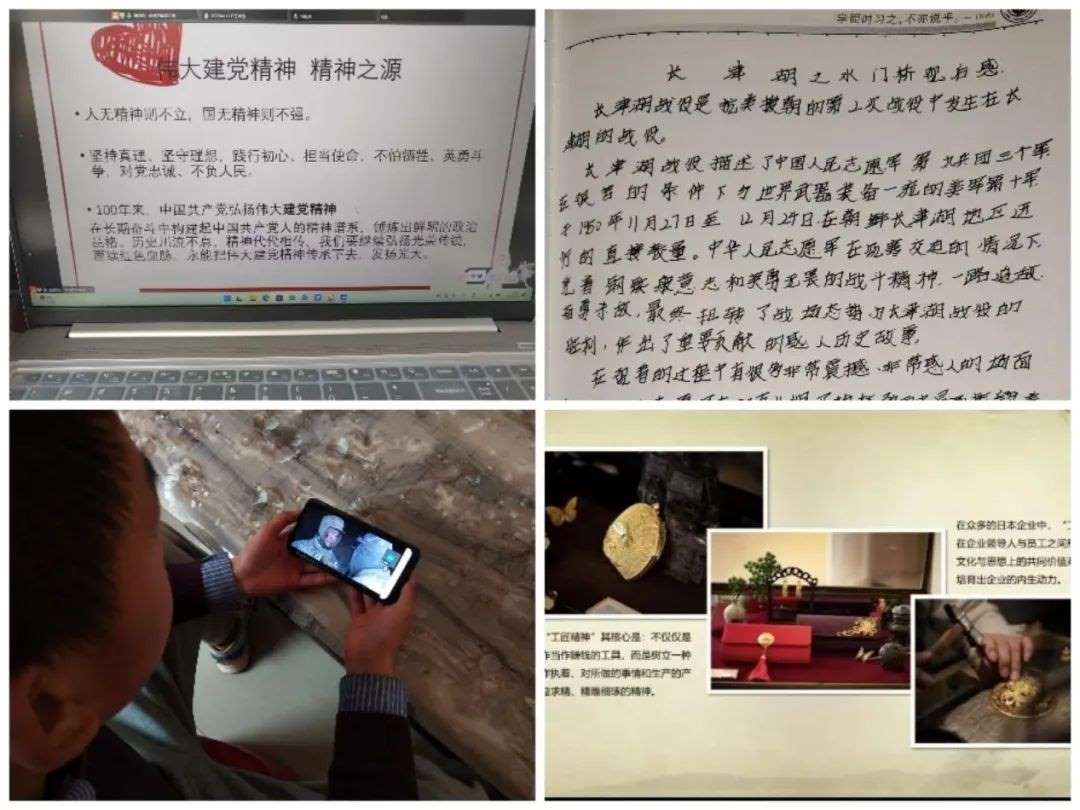 伟大建党精神 精神之源
• 人无精神则不立，国无精神则不强。
• 坚持真理、坚守理想，践行初心、担当使命，不怕牺牲、英勇斗
争，对党忠诚、不负人民。
• 100年来，中国共产党弘扬伟大建党精神
在长期奋斗中构建起中国共产党人的精神谱系，锤炼出鲜明的政治
品格。历史川流不息，精神代代相传。我们要继续弘扬光荣传统，
赓续红色血脉，永远把伟大建党精神传承下去、发扬光大。
学而时习之，不亦说乎。
长津湖之水门桥观后感
长津湖战役是抗美援朝的第二次战役中发生在长
湖的战役。
长津湖战役描述了中国人民志愿军第九兵团三个军
的条件下与世界武器装备一流的美军第十军
1950年11月27日至12月24日在朝鲜长津湖地区进
行的直接较量。中华人民志愿军在交迫的情况下
着钢意志和英勇无畏的战斗精神
最终扭转了战场态势为长津湖战役的
胜利，作出了重要贡献的感人历史故事
在观看的过程中有很多非常震撼、非常感人的场面
在众多的日本企业中，“工
在企业领导人与员工之间
文化与思想上的共同价值
培育出企业的内生动力。
“工匠精神”其核心是：不仅仅是
作当作赚钱的工具，而是树立一种
执着、对所做的事情和生产的产
益求精、精雕细琢的精神。